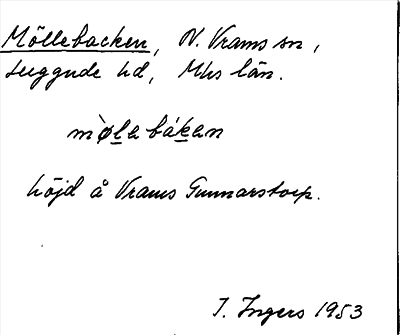 Möllebacken, N. Vrams sn,
Luggude hd, Mhs län.
mø̀lebákęn
höjd å Vrams Gunnarstorp.
I. Ingers 1953